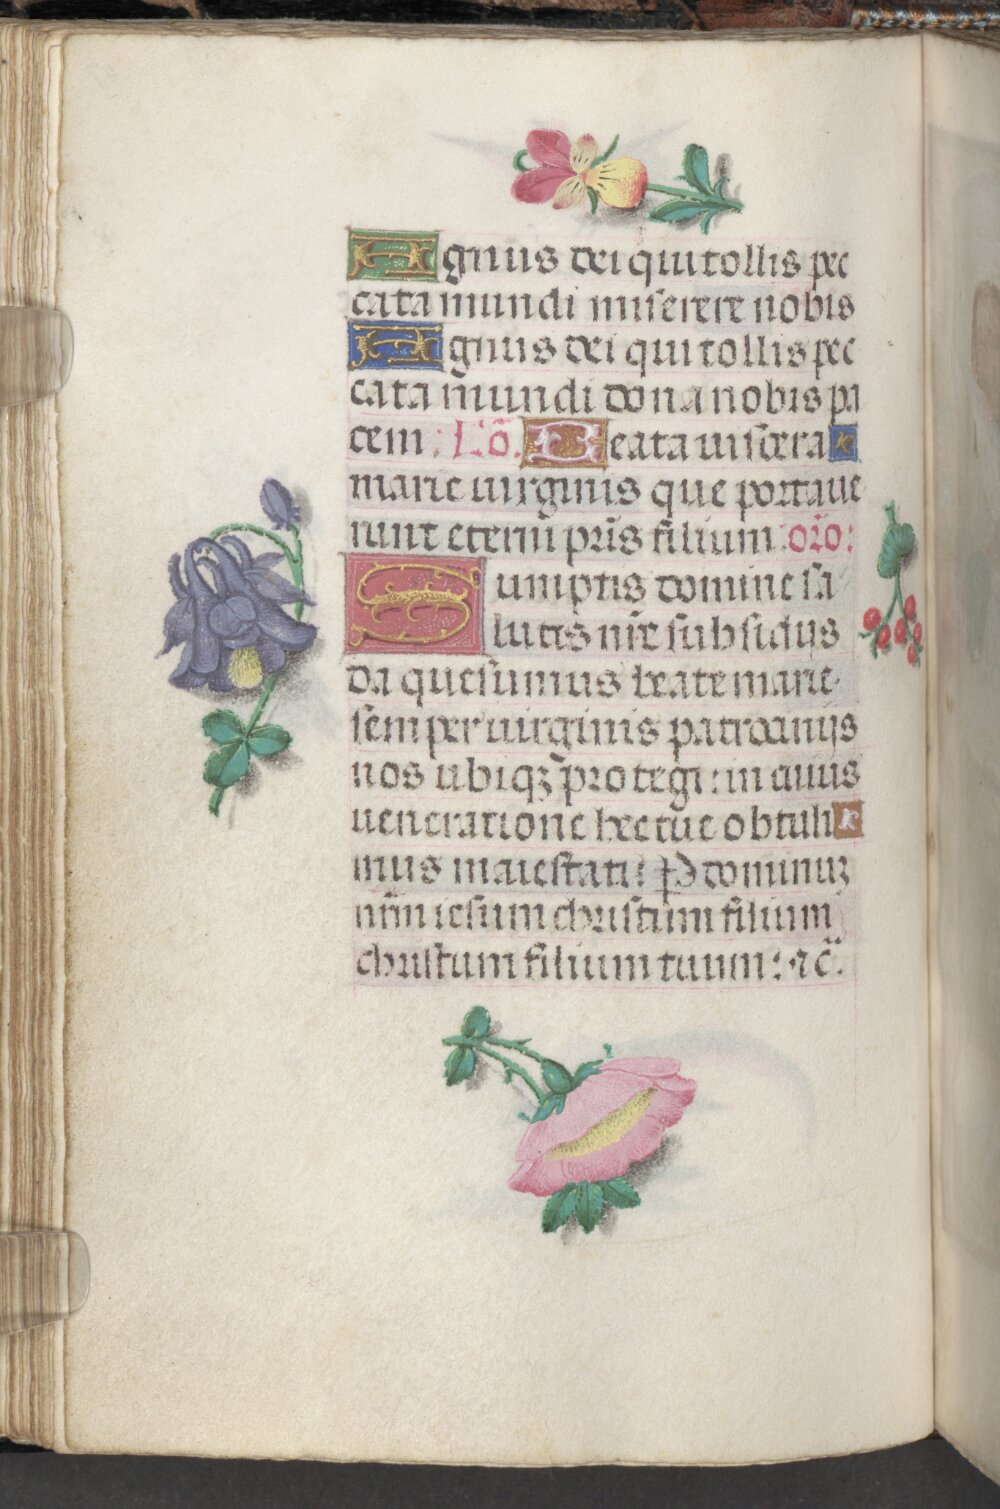 Agnus dei qui tollis pec
cata mundi miserere nobis
Agnus dei qui tollis pec
cata mundi dona nobis pa
cem. Cō. Beata viscera
marie uirginis que portaue
runt eterni p̄ris filium. oro:
Sumptis domine sa
lutis nr̄e subsidijs
da quesumus beate marie
semper uirginis patrocinijs
nos ubiqꝫ protegi: in cuius
ueneratione hec tue obtuli
mus maiestati: P dominuꝫ
nr̄m iesum christum filium
christum filium tuum: ⁊c̄.